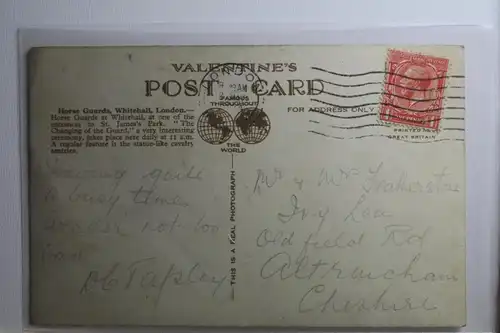 VALENTINE'S
POST CARD
LONDON
AM
FAMOUS
THROUGHOUT
THE
WORLD
FOR ADDRESS ONLY
PRINTED IN
GREAT BRITAIN
Horse Guards, Whitehall, London.—
Horse Guards is Whitehall, at one of the
entrances to St. James's Park. "The
Changing of the Guard," a very interesting
ceremony, takes place here daily at 11 a.m.
A regular feature is the statue-like cavalry
sentries.
THIS IS A REAL PHOTOGRAPH
quite
a busy time
not too
Tapley
Mr & Mrs Featherstone
Ivy Lea
Oldfield Rd
Altrincham
Cheshire